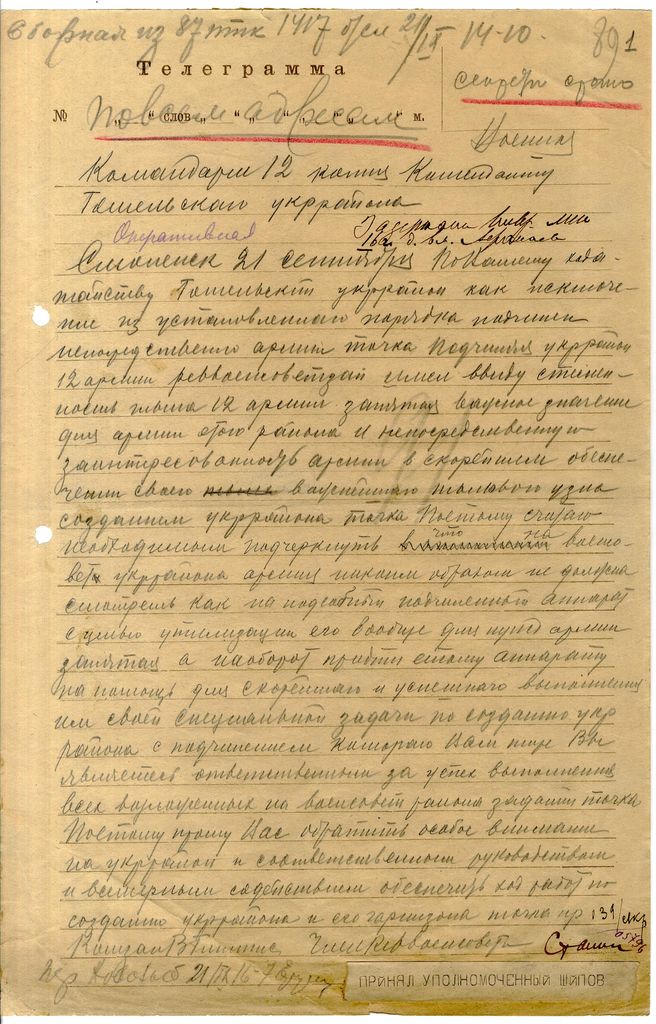 Сборная из 87 птк 1417 б/сл 21/IX 14-10. 891
Телеграмма
секретн срочно
№ „ “ слов „ “ „ “ „ “ м.
По всем адресам
Военная
Командарм 12 копия Коменданту
Гомельского укррайона
Оперативная
Смоленск 21 сентября По Вашему хода-
тайству Гомельский укррайон как исключе-
ние из установленного порядка подчинен
непосредственно армии точка Подчиняя укррайон
12 армии реввоенсовет имел ввиду
тыла 12 армии запятая важное значение
для армии этого района и непосредственную
заинтересованность армии в скорейшем обеспе-
чении своего важнейшего тылового узла
созданием укррайона точка Поэтому считаю
необходимым подчеркнуть что на воен-
совет укррайона армия никоим образом не должна
смотреть как на подсобный подчиненный аппарат
с целью утилизации его вообще для нужд армии
запятая а наоборот прийти этому аппарату
на помощь для скорейшего и успешного выполнения
им своей специальной задачи по созданию укр
района с подчинением которого Вам тире Вы
являетесь ответственным за успех выполнения
всех возложенных на военсовет района задач точка
Поэтому прошу Вас обратить особое внимание
на укррайон и соответственным руководством
и всемерным содействием обеспечить ход работ по
созданию укррайона и его гарнизона точка нр 139/
Член Реввоенсовета Сталин
21/IX 16-7
ПРИНЯЛ УПОЛНОМОЧЕННЫЙ ШИПОВ